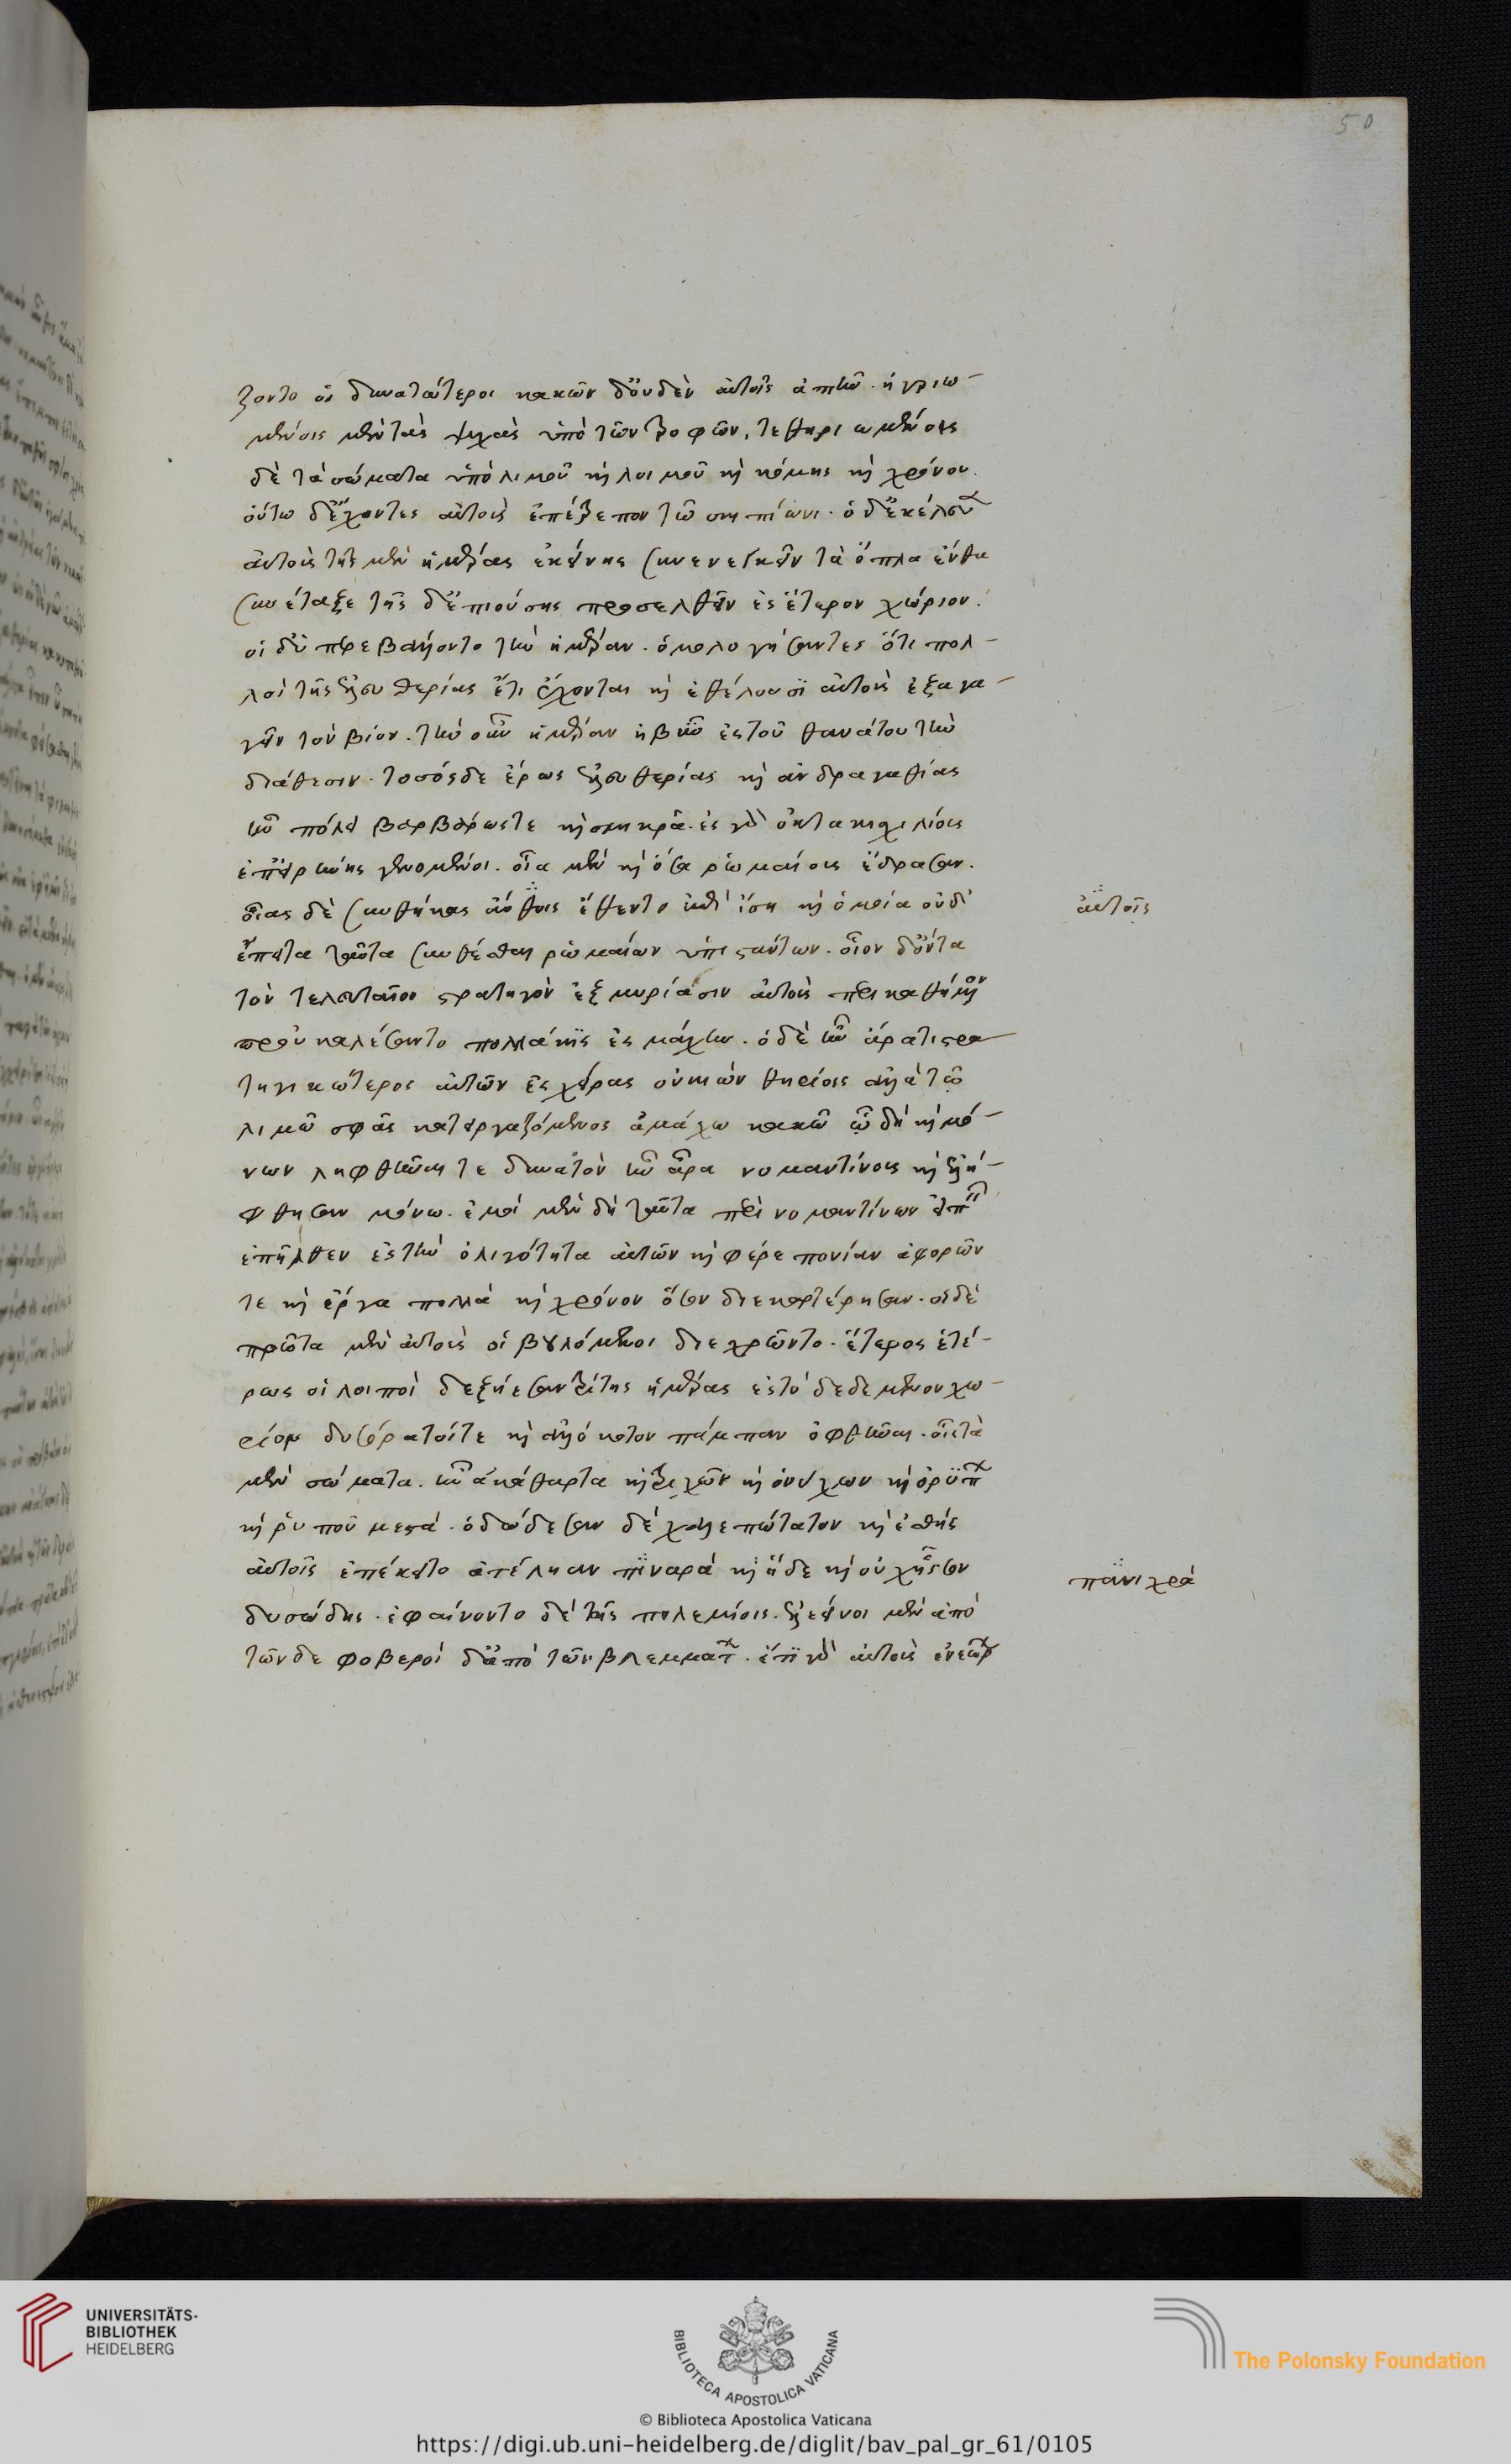 ζοντο οἱ δυνατώτεροι κακῶν δ' οὐδὲν αὐτοῖς ἀπῆν. ἠγριω-
μένοις μὲν τὰς ψυχὰς ὑπὸ τῶν τροφῶν, τεθηριωμένοις
δὲ τὰ σώματα ὑπὸ λιμοῦ καὶ λοιμοῦ καὶ κόμης καὶ χρόνου.
οὕτω δ' ἔχοντες αὑτοὺς ἐπέτρεπον τῶ σκιπίωνι. ὁ δ' ἐκέλευεν
αὐτοὺς τῆς μὲν ἡμέρας ἐκείνης συνενεγκεῖν τὰ ὅπλα ἔνθα
συνέταξε τῆς δ' ἐπιούσης προσελθεῖν ἐς ἕτερον χωρίον.
οἱ δ' ὑπερεβάλλοντο τὴν ἡμέραν. ὁμολογήσαντες ὅτι πολ-
λοὶ τῆς ἐλευθερίας ἔτι ἔχονται καὶ ἐθέλουσιν αὐτοὺς ἐξαγα-
γεῖν τὸν βίον. τὴν οὖν ἡμέραν ἡβῆν ἐς τοῦ θανάτου τὴν
διάθεσιν. τοσόσδε ἔρως ἐλευθερίας καὶ ἀνδραγαθίας
ἦν πόλει βαρβάρω τε καὶ σμικρᾶ. ἐς γὰρ ὀκτακισχιλίους
ἐπ' εἰρήνης γενόμενοι. οἷα μὲν καὶ ὅσα ῥωμαίους ἔδρασαν.
οἵας δὲ συνθήκας αὖθις ἔθεντο ἐπὶ ἴση καὶ ὁμοία οὐδ'
ἔπειτα ταῦτα συνθέσθαι ῥωμαίων ὑπιστάντων. οἷον δ' ὄντα
τὸν τελευταῖον στρατηγὸν ἓξ μυριάσιν αὐτοὺς περικαθήμενον
προὐκαλέσαντο πολλάκις ἐς μάχην. ὁ δὲ ἦν ἄρα στρα-
τηγικώτερος αὐτῶν ἐς χεῖρας οὐκ ἰὼν θηρίοις ἀλλὰ τῶ
λιμῶ σφᾶς κατεργαζόμενος ἀμάχω κακῶ ὧ δὴ καὶ μό-
νων ληφθῆναι τε δυνατὸν ἦν ἄρα νομαντίνους καὶ ἐλή-
φθησαν μόνω. ἐμοὶ μὲν δὴ ταῦτα περὶ νομαντίνων εἰπεῖν
ἐπῆλθεν ἐς τὴν ὀλιγότητα αὐτῶν καὶ φερεπονίαν ἀφορῶν
τε καὶ ἔργα πολλὰ καὶ χρόνον ὅσον διεκαρτέρησαν. οἱ δὲ
πρῶτα μὲν αὐτοὺς οἱ βουλόμενοι διεχρῶντο. ἕτερος ἑτέ-
ρως οἱ λοιποὶ δ' ἐξήεσαν τρίτης ἡμέρας ἐς τὸ δεδεμένον χω-
ρίον δυσόρατοί τε καὶ ἀλλόκοτον πάμπαν ὀφθῆναι. οἷς τὰ
μὲν σώματα. ἦν ἀκάθαρτα καὶ τριχῶν καὶ ὀνύχων καὶ ὀρύπων
καὶ ῥύπου μεστά. ὀδώδεσαν δὲ χαλεπώτατον καὶ ἐσθὴς
αὐτοῖς ἐπέκειτο ἀτέλησαν πιναρὰ καὶ ἥδε καὶ οὐχ ἧσσον
δυσώδης. ἐφαίνοντο δὲ τοῖς πολεμίοις. ἐλεεινοὶ μὲν ἀπὸ
τῶνδε φοβεροὶ δ' ἀπὸ τῶν βλεμμάτων. ἔτι γὰρ αὐτοὺς ἐνεώρων
αὐτοῖς
πανιχρά
50
UNIVERSITÄTS-
BIBLIOTHEK
HEIDELBERG
BIBLIOTECA APOSTOLICA VATICANA
© Biblioteca Apostolica Vaticana
The Polonsky Foundation
https://digi.ub.uni-heidelberg.de/diglit/bav_pal_gr_61/0105